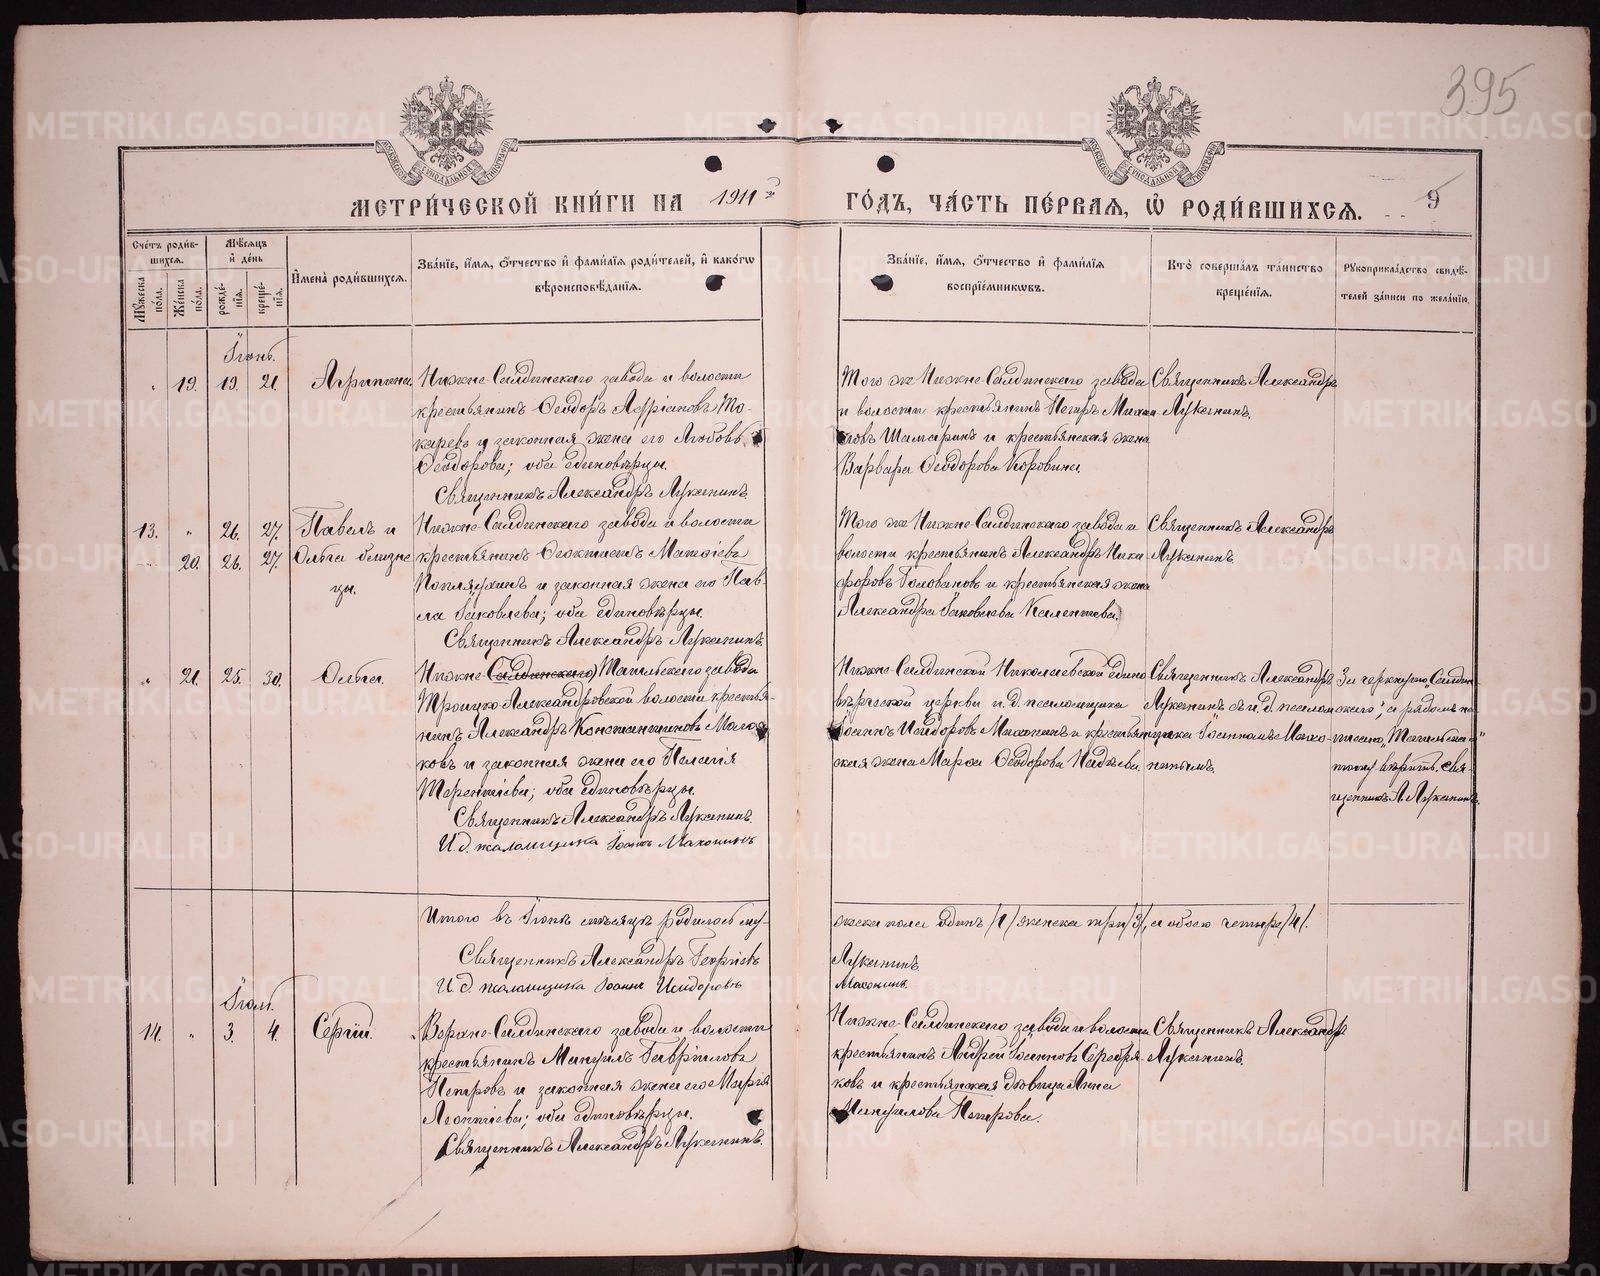 395
МЕТРИ́ЧЕСКОЙ КНИ́ГИ НА 1911 ГО́ДЪ, ЧА́СТЬ ПЕ́РВАЯ, Ѡ РОДИ́ВШИХСЯ. 9
Сче́тъ роди́в-
шихся.
Мѣ́сяцъ
и҆ де́нь
Мꙋ́жеска по́ла.
Же́нска по́ла.
рожде́-
нїя.
креще́-
нїя.
И҆мена̀ роди́вшихся.
Зва́нїе, и҆́мя, ѻ҆́тчество и҆ фами́лїя роди́телей, и҆ како́гѡ
вѣроисповѣ́данїя.
Зва́нїе, и҆́мя, ѻ҆́тчество и҆ фами́лїя
воспрїе́мникѡвъ.
Кто̀ соверша́лъ та́инство
креще́нїя.
Рꙋкоприкла́дство свидѣ́-
телей за́писи по жела́нїю.
Іюнь.
" 19. 19. 21. Агрипина.
Нижне-Салдинскаго завода и волости
крестьянинъ Ѳеодоръ Адріановъ То-
каревъ и законная жена его Любовь
Ѳеодорова; оба единовѣрцы.
Священникъ Александръ Луканинъ.
Того же Нижне-Салдинскаго завода
и волости крестьянинъ Петръ Михаи-
ловъ Шамаринъ и крестьянская жена
Варвара Ѳеодорова Коровина.
Священникъ Александръ
Луканинъ.
13. " 26. 27. Павелъ и
" 20. 26. 27. Ольга близне
цы.
Нижне-Салдинскаго завода и волости
крестьянинъ Ѳеоктистъ Матѳіевъ
и законная жена его Пав-
ла Іаковлева; оба единовѣрцы.
Священникъ Александръ Луканинъ.
Того же Нижне-Салдинскаго завода и
волости крестьянинъ Александръ Ника-
форовъ Головановъ и крестьянская жена
Александра Іаковлева Калентьева.
Священникъ Александръ
Луканинъ.
" 21. 25. 30. Ольга.
Нижне-(Салдинскаго) Тагильскаго завода
Троицко-Александровской волости крестья-
нинъ Александръ Константиновъ Мало-
ковъ и законная жена его Пелагія
Терентіева; оба единовѣрцы.
Священникъ Александръ Луканинъ.
И. д. псаломщика Іоаннъ Махонинъ
Нижне-Салдинской Николаевской едино
вѣрческой церкви и. д. псаломщика
Іоаннъ Исидоровъ Махонинъ и крестьян-
ская жена Марѳа Ѳеодорова Надѣева.
Священникъ Александръ
Луканинъ съ и. д. псалом
щика Іоанномъ Махо-
нинымъ.
Зачеркнуто „Салдин
скаго", а рядомъ на
писано „Тагильскаго"
тому вѣрить. Свя-
щенникъ А. Луканинъ.
Итого въ Іюнѣ мѣсяцѣ родилось му-
жеска пола одинъ /1/ женска три /3/, а обоего четыре /4/.
Священникъ Александръ Георгіевъ
Луканинъ.
И. д. псаломщика Іоаннъ Исидоровъ
Махонинъ.
Іюль.
14. " 3. 4. Сергій.
Верхне-Салдинскаго завода и волости
крестьянинъ Мануилъ Гавріиловъ
Петровъ и законная жена его Марія
Леонтіева; оба единовѣрцы.
Священникъ Александръ Луканинъ.
Нижне-Салдинскаго завода и волости
крестьянинъ Андрей Іоанновъ Серебря-
ковъ и крестьянская дѣвица Анна
Мануилова Петрова.
Священникъ Александръ
Луканинъ.